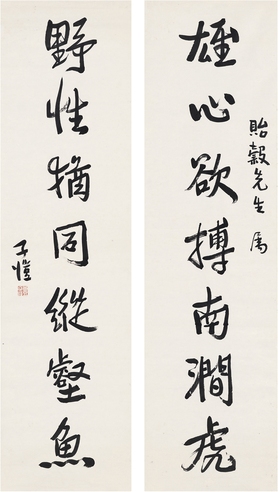 貽穀先生属
雄心欲搏南澗虎
野性猶同縱壑魚
子愷